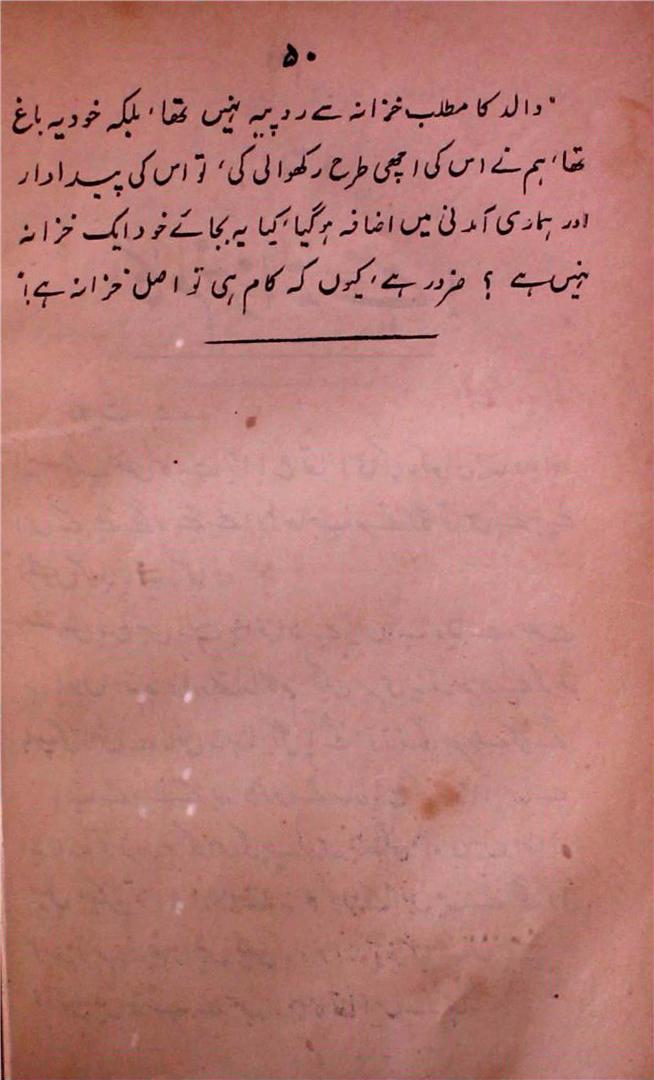 ۵۰
"والد کا مطلب خزانہ سے روپیہ نہیں تھا، بلکہ خود یہ باغ
تھا، ہم نے اس کی اچھی طرح رکھوالی کی، تو اس کی پیداوار
اور ہماری آمدنی میں اضافہ ہوگیا، کیا یہ بجائے خود ایک خزانہ
نہیں ہے ؟ ضرور ہے، کیوں کہ کام ہی تو اصل خزانہ ہے!"